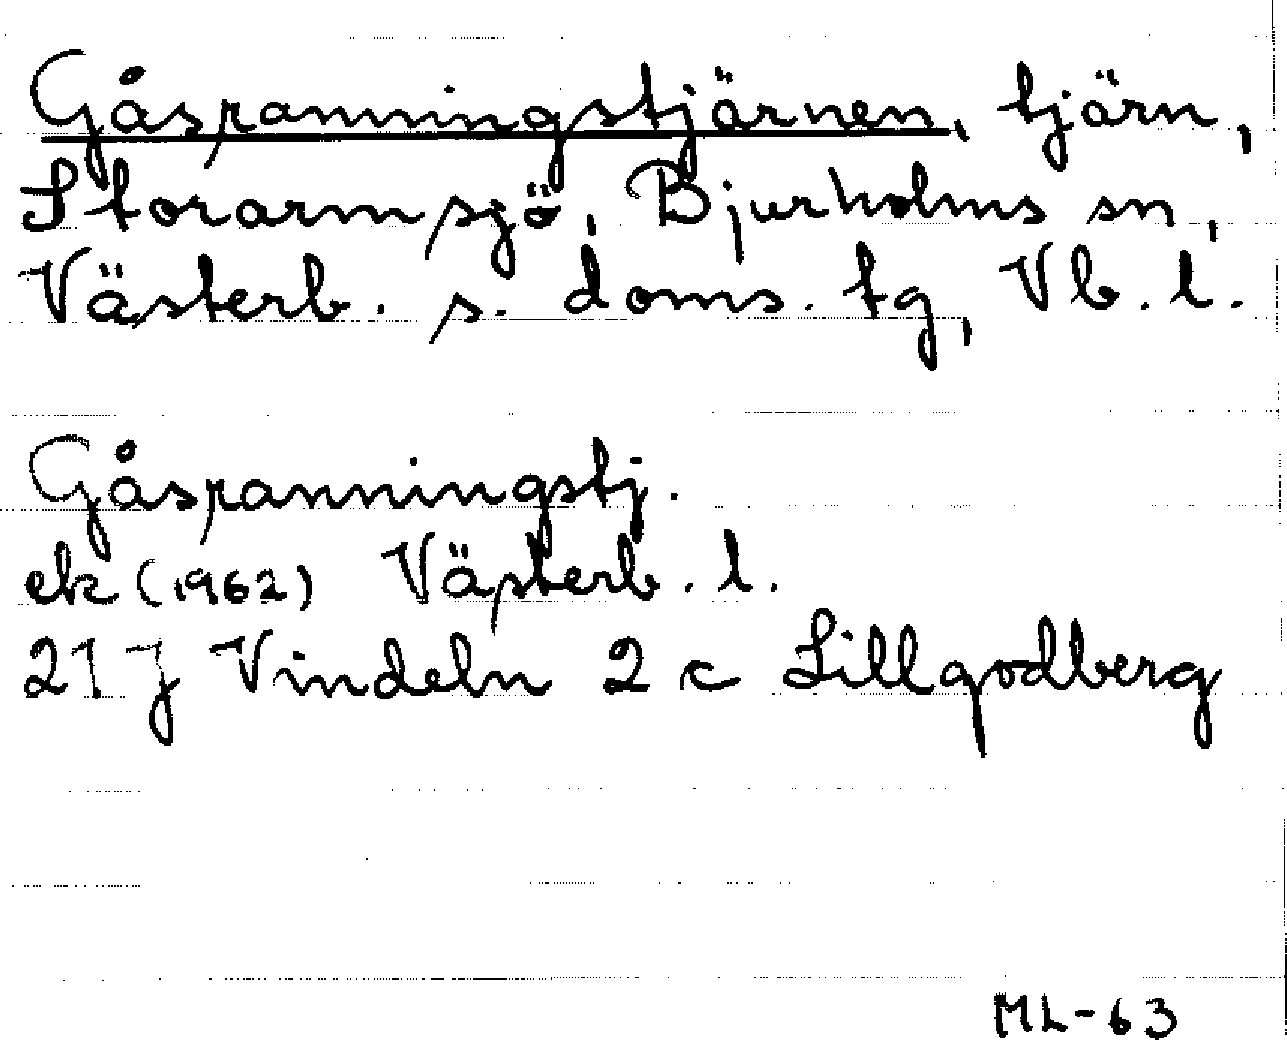 Gåspanningstjärnen, tjärn,
Storarmsjö, Bjurholms sn,
Västerb. s. doms. tg, Vb. l.
Gåspanningstj.
ek (1962) Västerb. l.
21 J Vindeln 2 c Lillgodberg
ML-63